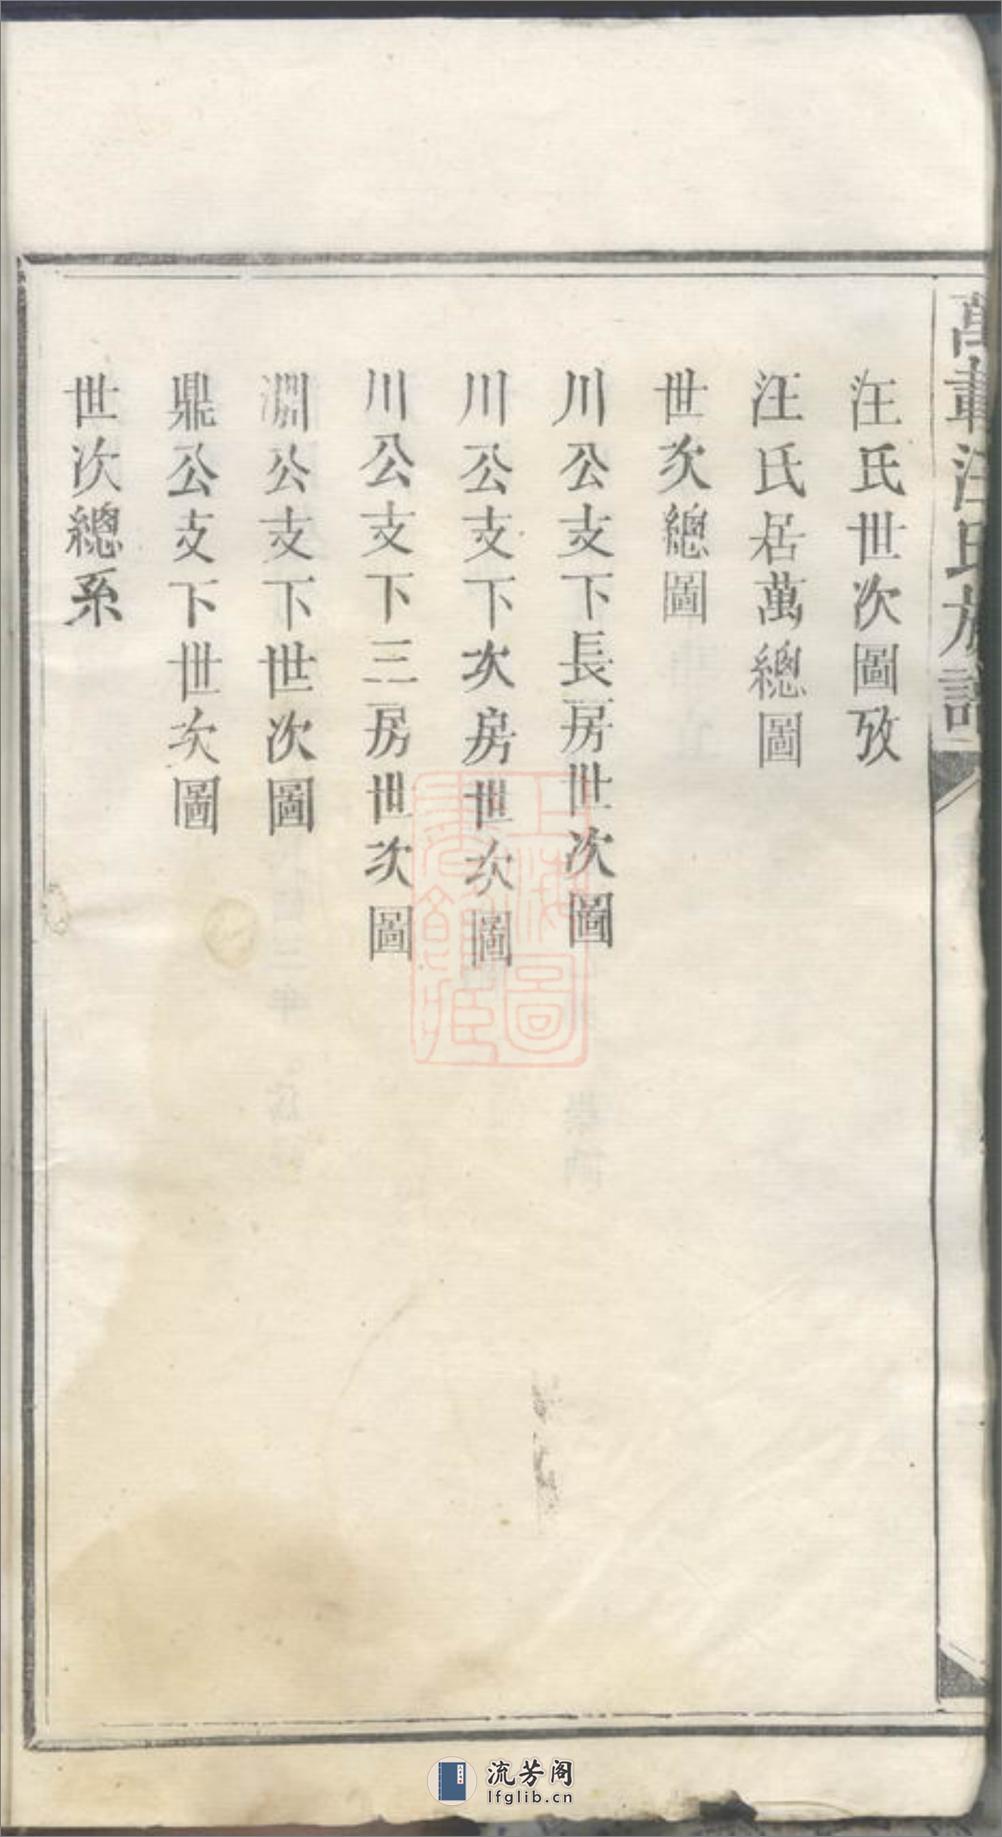 萬載汪氏族譜
汪氏世次圖攷
汪氏居萬總圖
世次總圖
川公支下長房世次圖
川公支下次房世次圖
川公支下三房世次圖
淵公支下世次圖
鼎公支下世次圖
世次總系
上海圖書館藏
流芳阁
lfglib.cn